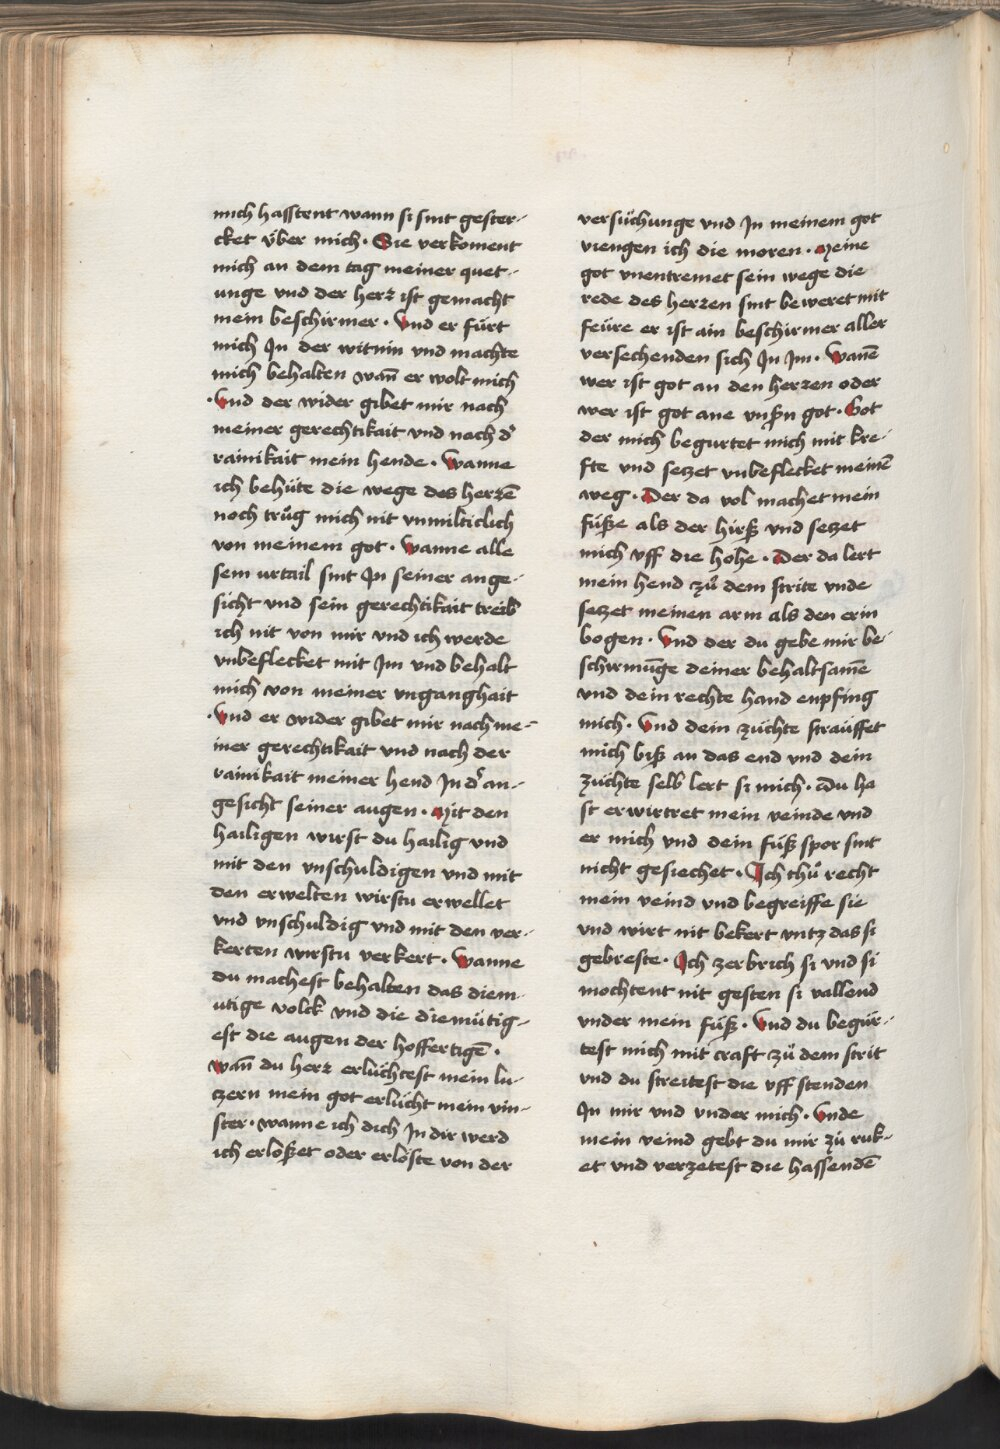 mich hasstent wann si sint gester-
cket über mich. Sie verkoment
mich an dem tag meiner quet-
unge vnd der herz ist gemacht
mein beschirmer. Vnd er fürt
mich Jn der witnin vnd machte
mich behalten wañ er wolt mich
. Vnd der wider gibet mir nach
meiner gerechtikait vnd nach dˀ
rainikait mein hende. Wanne
ich behüte die wege des herzē
noch trůg mich nit vnmilticlich
von meinem got. Wanne alle
sein urtail sint Jn seiner ange-
sicht vnd sein gerechtikait treib
ich nit von mir vnd ich werde
vnbeflecket mit Jm vnd behalt
mich von meiner vnganghait
. Vnd er wider gibet mir nach me-
iner gerechtikait vnd nach der
rainikait meiner hend Jn dˀ an-
gesicht seiner augen. Mit den
hailigen wirst du hailig vnd
mit den vnschuldigen vnd mit
den erwelten wirstu erwellet
vnd vnschuldig vnd mit den ver-
kerten wirstu verkert. Wanne
du machest behalten das diem-
utige volck vnd die diemütig-
est die augen der hoffertigē.
Wañ du herz erlüchtest mein lu-
czern mein got erlücht mein vin-
ster. wanne ich dich Jn dir werd
ich erloßet oder erlöste von der
versüchunge vnd Jn meinem got
viengen ich die moren. Meine
got vnentremet sein wege die
rede des herzen sint beweret mit
feüre er ist ain beschirmer aller
versechenden sich Jn Jm. Wanē
wer ist got an den herzen oder
wer ist got ane vnßn got. Got
der mich begurtet mich mit kre-
fte vnd setzet vnbeflecket meinē
weg. Der da vol machet mein
füße als der hirß vnd setzet
mich vff die hohe. Der da lert
mein hend zů dem strite vnde
setzet meinen arm als den erin
bogen. Vnd der du gebe mir be-
schirmūge deiner behaltsamē
vnd dein rechte hand enpfing
mich. Vnd dein züchte straüffet
mich biß an das end vnd dein
züchte selb lert si mich. Du ha
st erwirtret mein veinde vnd
er mich vnd dein füß spor sint
nicht gesiechet. Ich thů recht
mein veind vnd begreiffe sie
vnd wirt nit bekert vntz das si
gebreste. Ich zerbrich si vnd si
mochtent nit gesten si vallend
vnder mein füß. Vnd du begür-
test mich mit craft zů dem strit
vnd du streitest die vff stenden
Jn mir vnd vnder mich. Vnde
mein veind gebt du mir zů ruk-
et vnd verzetest die hassendē